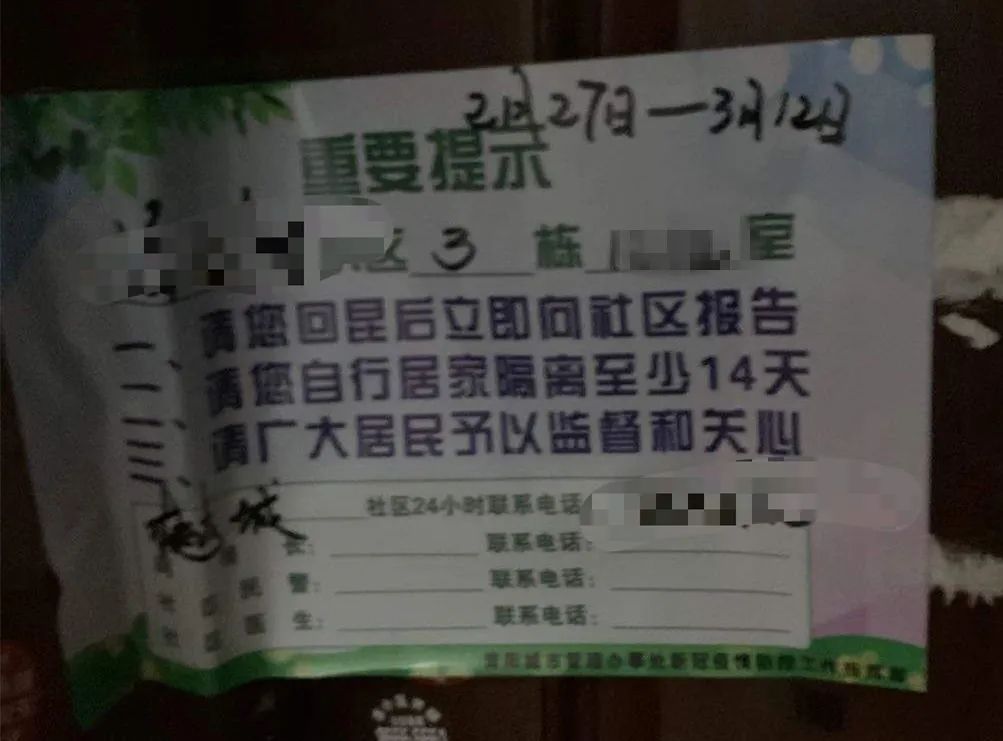 2月27日—3月12日
重要提示
区 3 栋 室
一、请您回昆后立即向社区报告
二、请您自行居家隔离至少14天
三、请广大居民予以监督和关心
城 社区24小时联系电话
长： 联系电话：
社区民警： 联系电话：
社区医生： 联系电话：
城市管理办事处新冠疫情防控工作指挥部